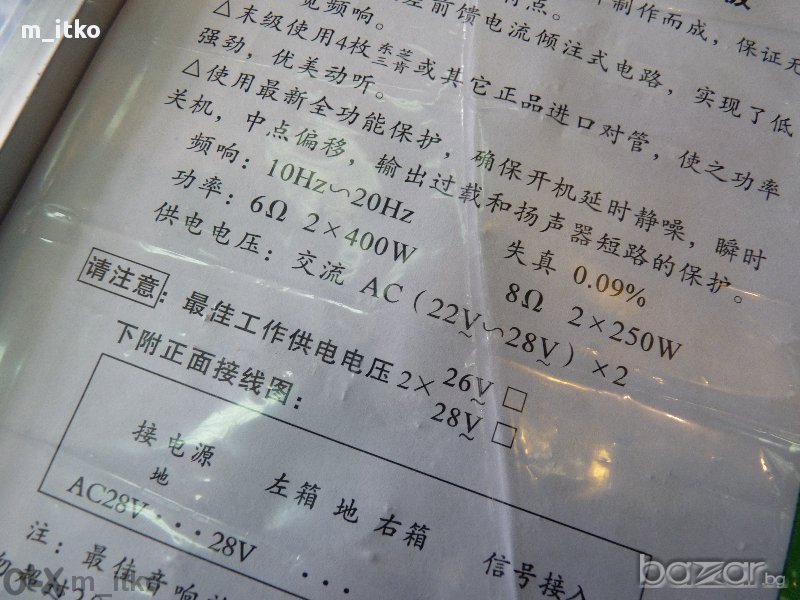 m_itko
制作而成，保证无
宽频响。
差前馈电流倾注式电路，实现了低
△末级使用4枚东芝三肯或其它正品进口对管，使之功率
强劲，优美动听。
△使用最新全功能保护，确保开机延时静噪，瞬时
关机，中点偏移，输出过载和扬声器短路的保护。
频响：10Hz∽20Hz 失真 0.09%
功率：6Ω 2×400W 8Ω 2×250W
供电电压：交流 AC（22V∽28V）×2
请注意：最佳工作供电电压2×26V □
28V □
下附正面接线图：
接电源 左箱 地 右箱 信号接入
地
AC28V···28V ···
注：最佳音响
勿超过2
OLX m_itko
bazar.bg